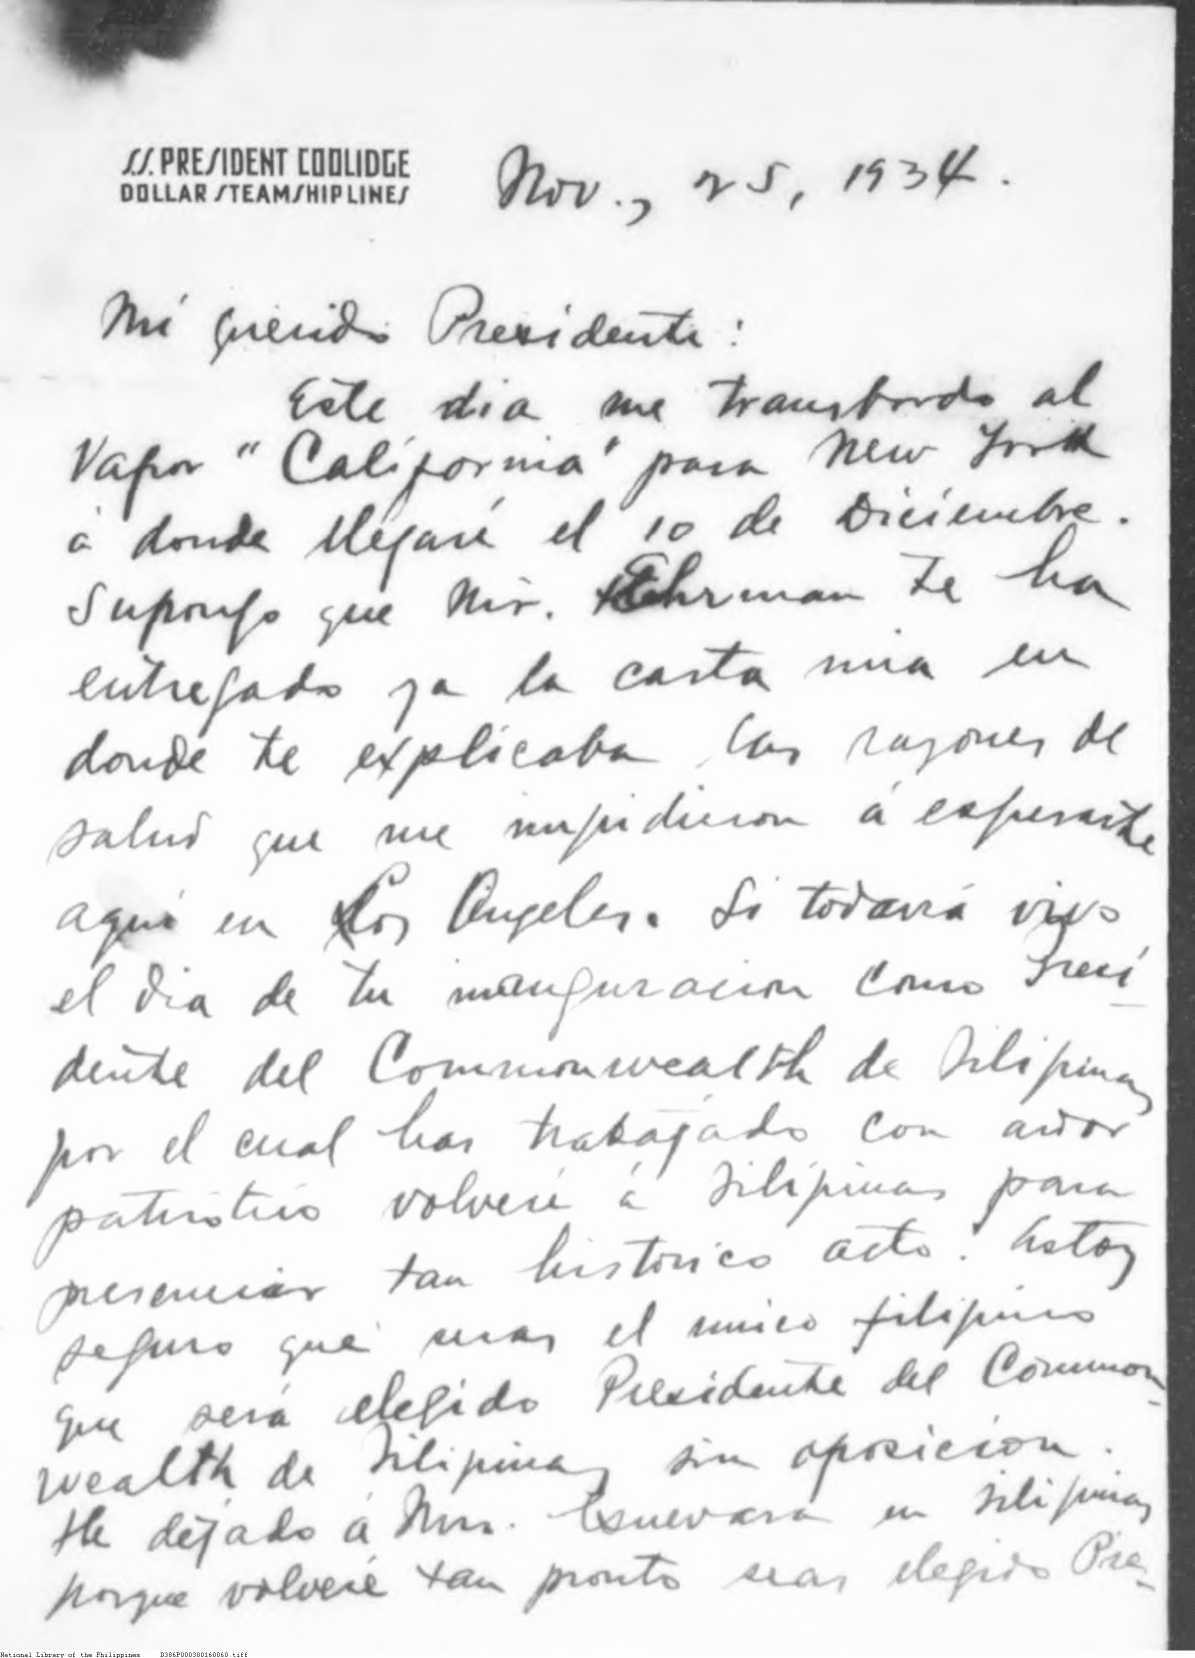 S.S. PRESIDENT COOLIDGE
DOLLAR STEAMSHIP LINES
Nov., 25, 1934.
Mi querido Presidente:
Este dia me transbordo al
Vapor "California" para New York
á donde llegaré el 10 de Diciembre.
Supongo que Mr. Ehrman te ha
entregado ya la carta mia en
donde te explicaba las razones de
salud que me impidieron á esperarte
aqui en Los Angeles. Si todaviá vivo
el dia de tu inauguracion como Presi-
dente del Commonwealth de Filipinas
por el cual has trabajado con ardor
patriotico volveré á Filipinas para
presenciar tan historico acto. Estoy
seguro que seras el unico filipino
que será elegido Presidente del Common-
wealth de Filipinas sin oposicion.
He dejado á Mrs. Guevara en Filipinas
porque volveré tan pronto seas elegido Pre-
National Library of the Philippines D386P000300160060.tiff